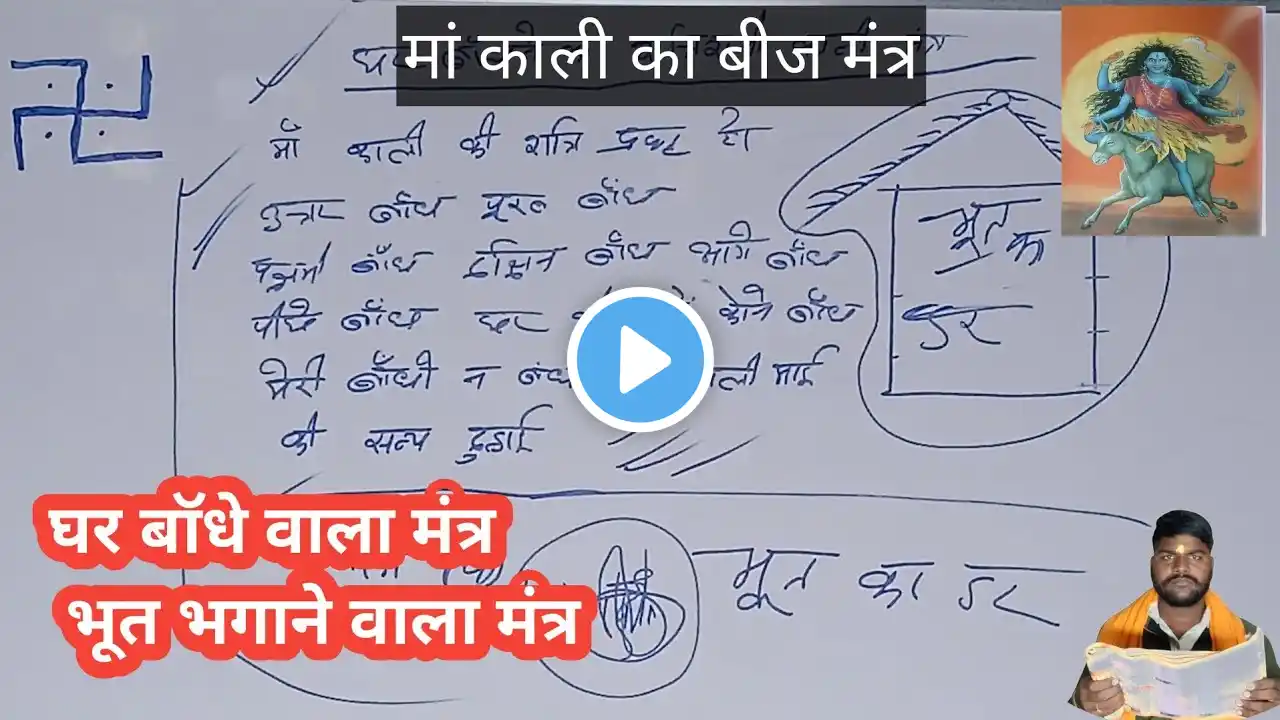 मां काली का बीज मंत्र
माँ काली की शत्रि प्रकट हो
उत्तर बाँध पूरब बाँध
बाँध दक्षिन बाँध आगे बाँध
पीछे बाँध घर कोने बाँध
मेरी बाँधी न काली माई
की सत्य दुहाई
भूत का
डर
घर बॉधे वाला मंत्र
भूत का डर
भूत भगाने वाला मंत्र